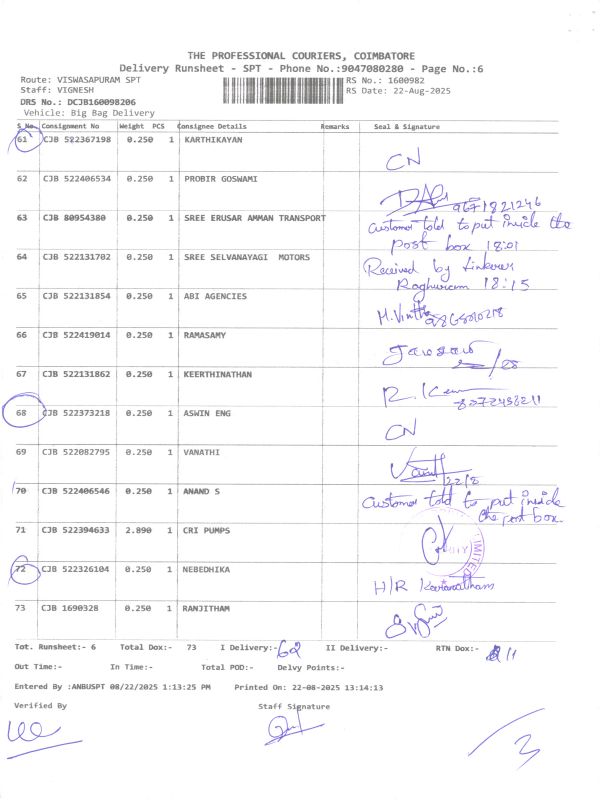 THE PROFESSIONAL COURIERS, COIMBATORE
Delivery Runsheet - SPT - Phone No.:9047080280 - Page No.:6
Route: VISWASAPURAM SPT RS No.: 1600982
Staff: VIGNESH RS Date: 22-Aug-2025
DRS No.: DCJB160098206
Vehicle: Big Bag Delivery
S No. Consignment No Weight PCS Consignee Details Remarks Seal & Signature
61 CJB 522367198 0.250 1 KARTHIKAYAN
CN
62 CJB 522406534 0.250 1 PROBIR GOSWAMI
9671821246
63 CJB 80954380 0.250 1 SREE ERUSAR AMMAN TRANSPORT
Customer told to put inside the
post box 18:01
64 CJB 522131702 0.250 1 SREE SELVANAYAGI MOTORS
Received by
Raghuram 18:15
65 CJB 522131854 0.250 1 ABI AGENCIES
66 CJB 522419014 0.250 1 RAMASAMY
67 CJB 522131862 0.250 1 KEERTHINATHAN
68 CJB 522373218 0.250 1 ASWIN ENG
CN
69 CJB 522082795 0.250 1 VANATHI
22/8
70 CJB 522406546 0.250 1 ANAND S
Customer told to put inside
the post box.
71 CJB 522394633 2.890 1 CRI PUMPS
72 CJB 522326104 0.250 1 NEBEDHIKA
H/R
73 CJB 1690328 0.250 1 RANJITHAM
Tot. Runsheet:- 6 Total Dox:- 73 I Delivery:- 62 II Delivery:- RTN Dox:- 11
Out Time:- In Time:- Total POD:- Delvy Points:-
Entered By :ANBUSPT 08/22/2025 1:13:25 PM Printed On: 22-08-2025 13:14:13
Verified By Staff Signature
3